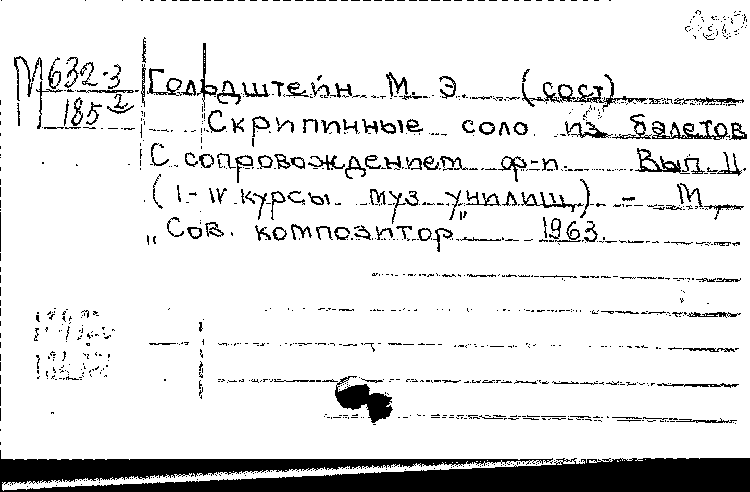 М 632-3 Гольдштейн М. Э. (сост).
185 2 Скрипичные соло из балетов
С сопровождением ф-п. Вып. II.
(I-IV курсы муз. училищ) - М.,
„Сов. композитор" 1963.